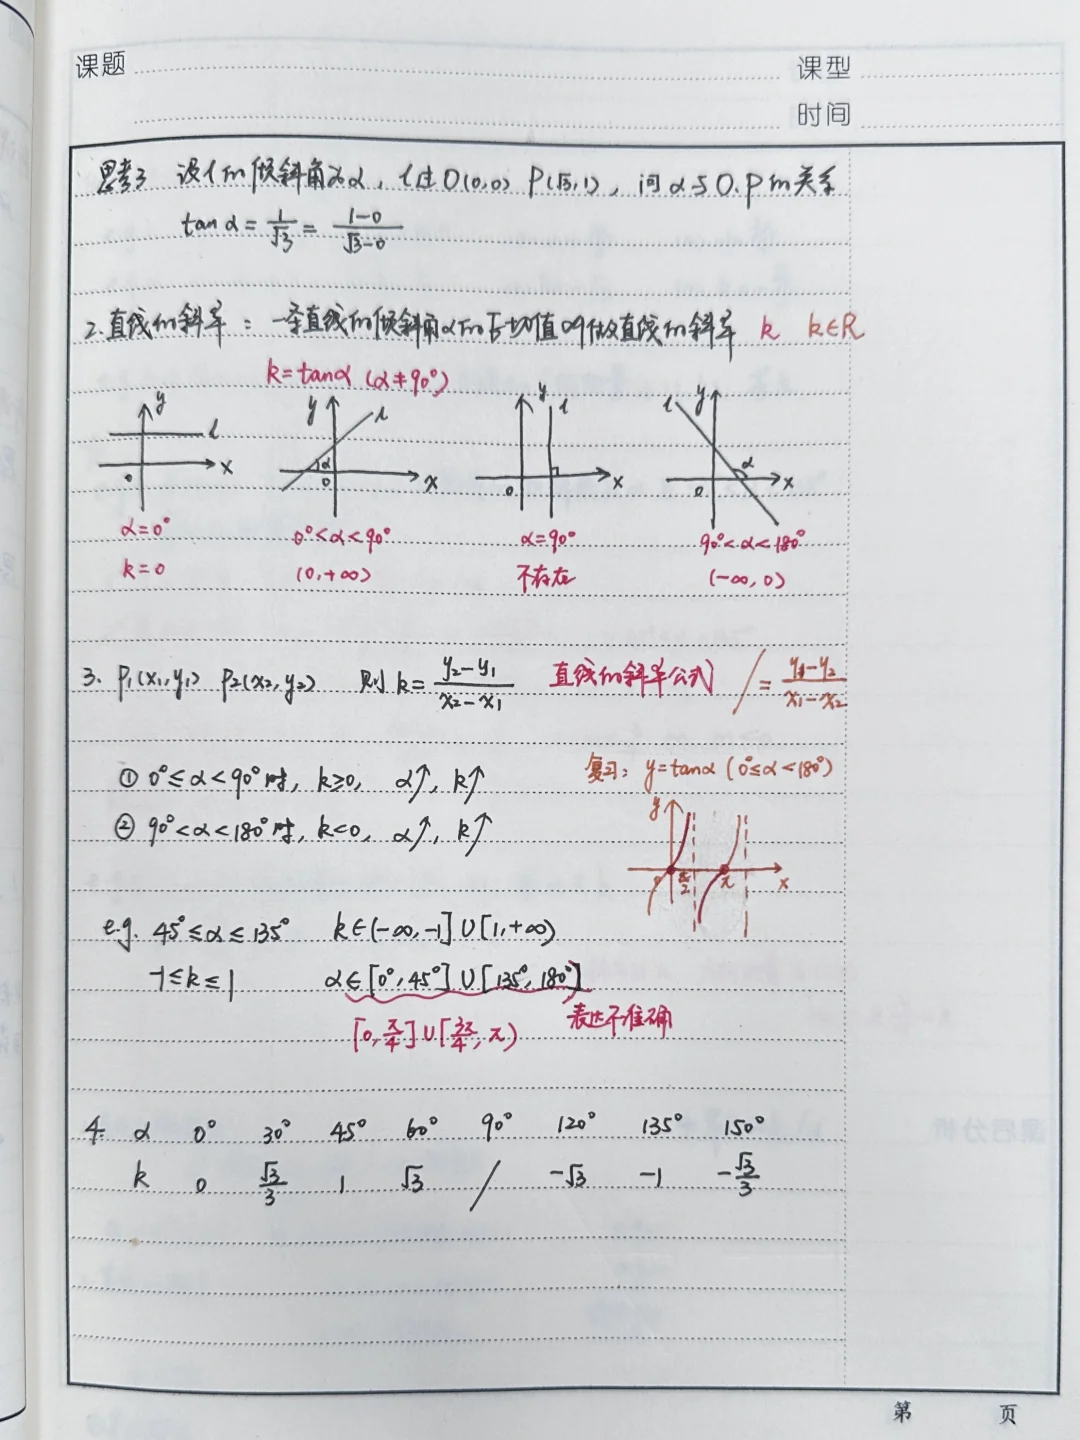 课题 课型
时间
思考3 设l的倾斜角为α，l过O(0,0) P(√3,1)，问α与O.P的关系
tanα = 1/√3 = (1-0)/(√3-0)
2.直线的斜率：一条直线的倾斜角α的正切值叫做直线的斜率 k k∈R
k=tanα (α≠90°)
y l x o
y l α o x
y l o x
l y α o x
α=0° 0°<α<90° α=90° 90°<α<180°
k=0 (0,+∞) 不存在 (-∞,0)
3. P₁(x₁,y₁) P₂(x₂,y₂) 则 k=(y₂-y₁)/(x₂-x₁) 直线的斜率公式 / =(y₁-y₂)/(x₁-x₂)
复习：y=tanα (0°≤α<180°)
① 0°≤α<90°时，k≥0，α↑，k↑
② 90°<α<180°时，k<0，α↑，k↑
y π/2 π x
e.g. 45°≤α≤135° k∈(-∞,-1]∪[1,+∞)
-1≤k≤1 α∈[0°,45°]∪[135°,180°)]
[0,π/4]∪[3π/4,π) 表达不准确
4. α 0° 30° 45° 60° 90° 120° 135° 150°
k 0 √3/3 1 √3 / -√3 -1 -√3/3
第 页